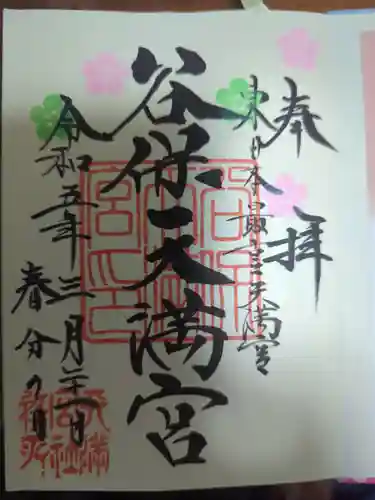 奉拝
東日本最古天満宮
谷保天満宮
令和五年三月二十一日
春分の日